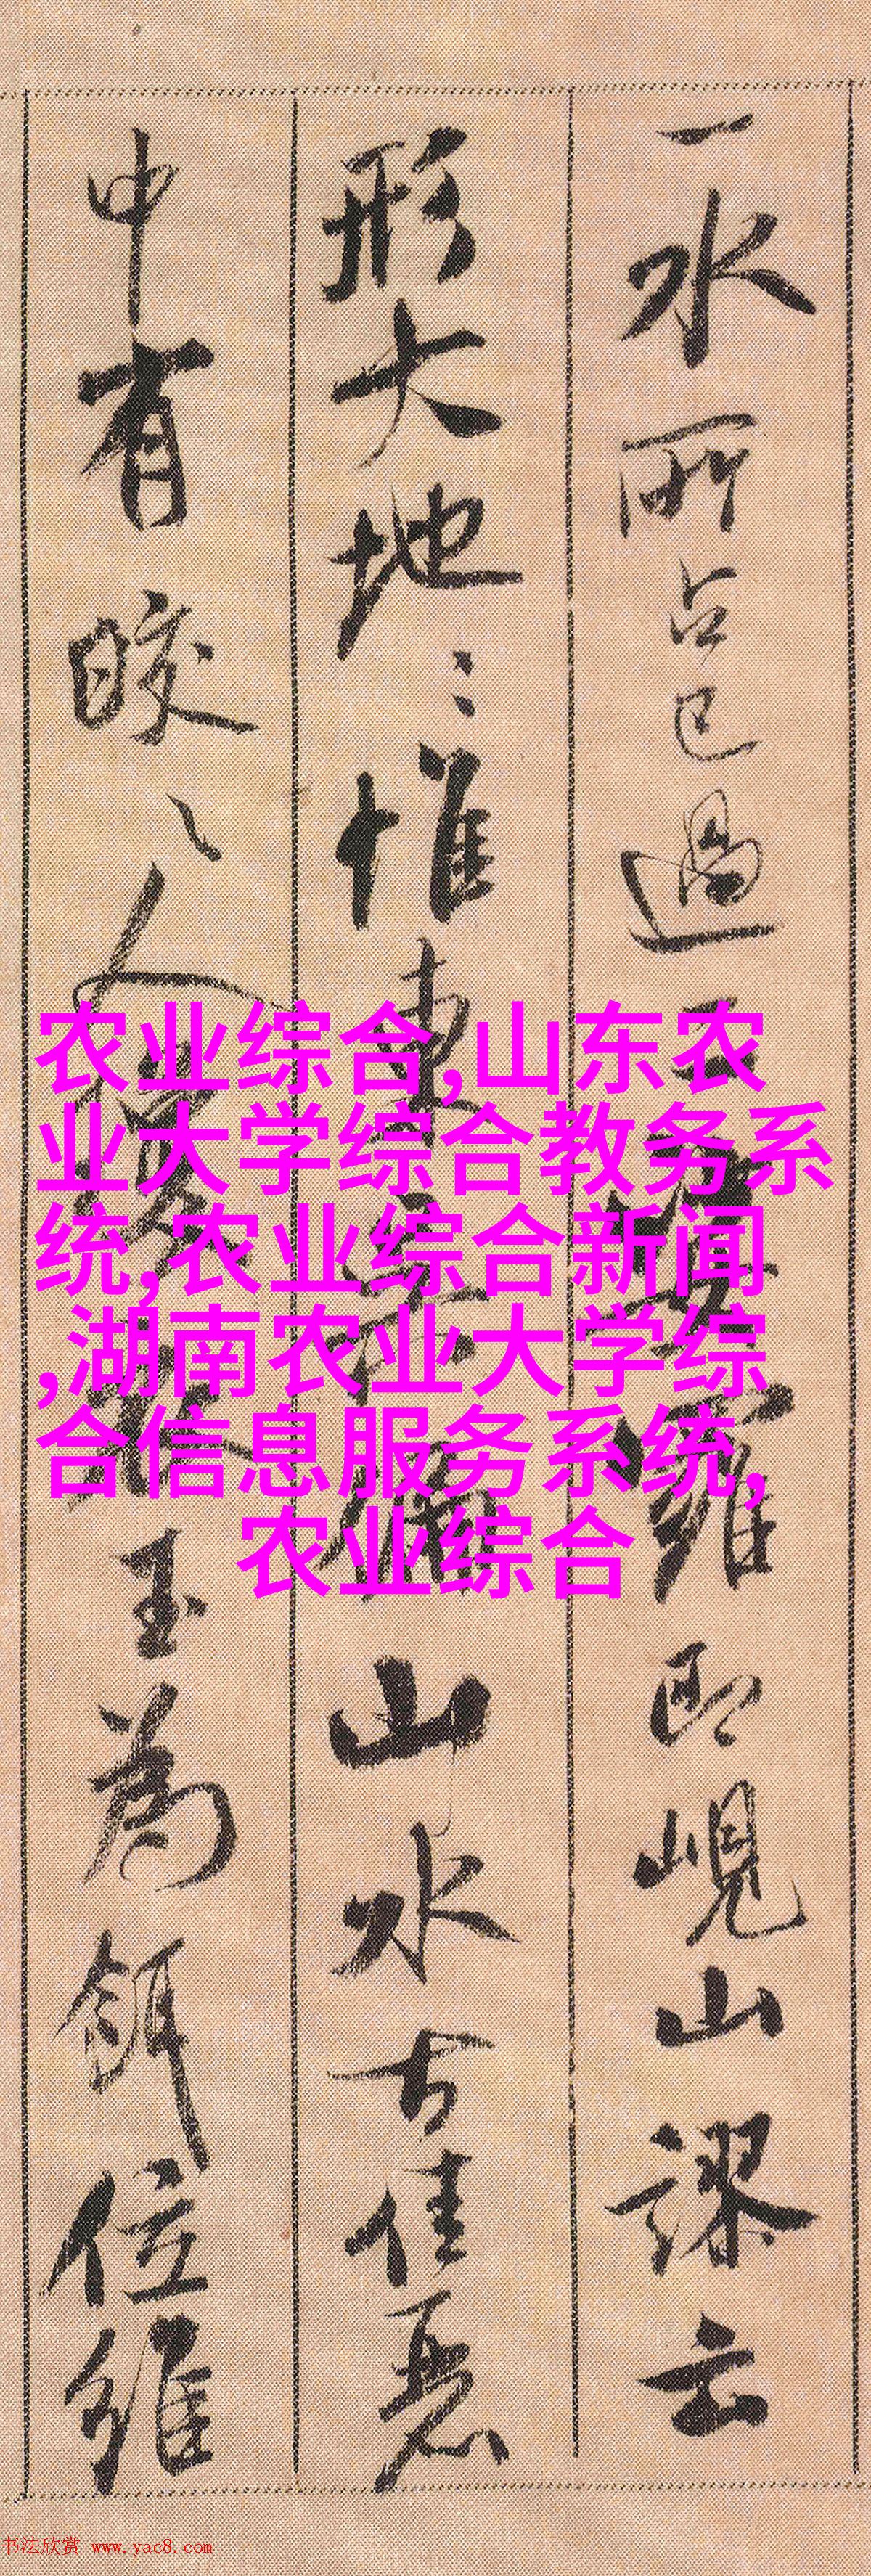 一水所占已過
羅即峴山謬云
形大地〻惟東
山水古佳惡
中有皎〻人
玉為飾位維
农业综合,山东农
业大学综合教务系
统,农业综合新闻
,湖南农业大学综
合信息服务系统,
农业综合
书法欣赏 www.yac8.com